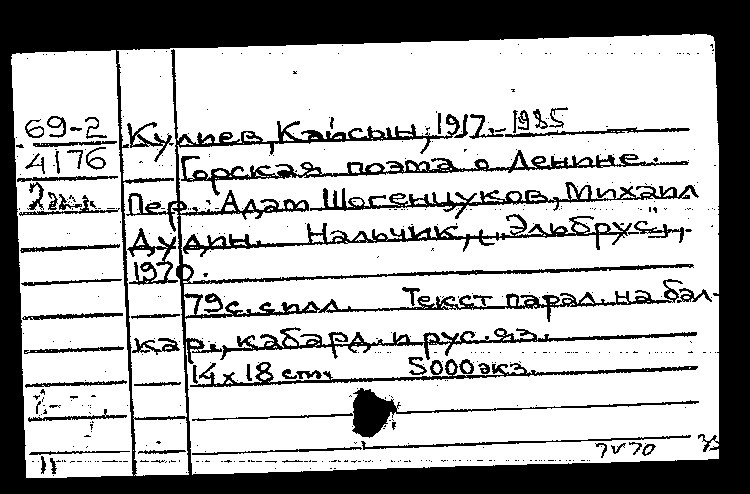 69-2
4176
2 экз.
Кулиев, Кайсын, 1917-1985
Горская поэма о Ленине.
Пер.: Адам Шогенцуков, Михаил
Дудин. Нальчик, „Эльбрус",
1970.
79 с. с илл. Текст парал. на бал-
кар., кабард. и рус. яз.
14 x 18 стм 5000 экз.